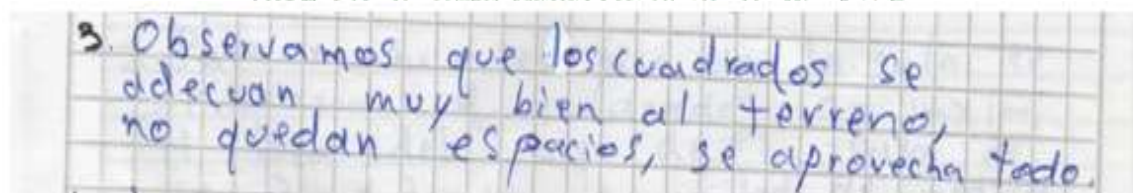 3. Observamos que los cuadrados se
adecuan muy bien al terreno,
no quedan espacios, se aprovecha todo.